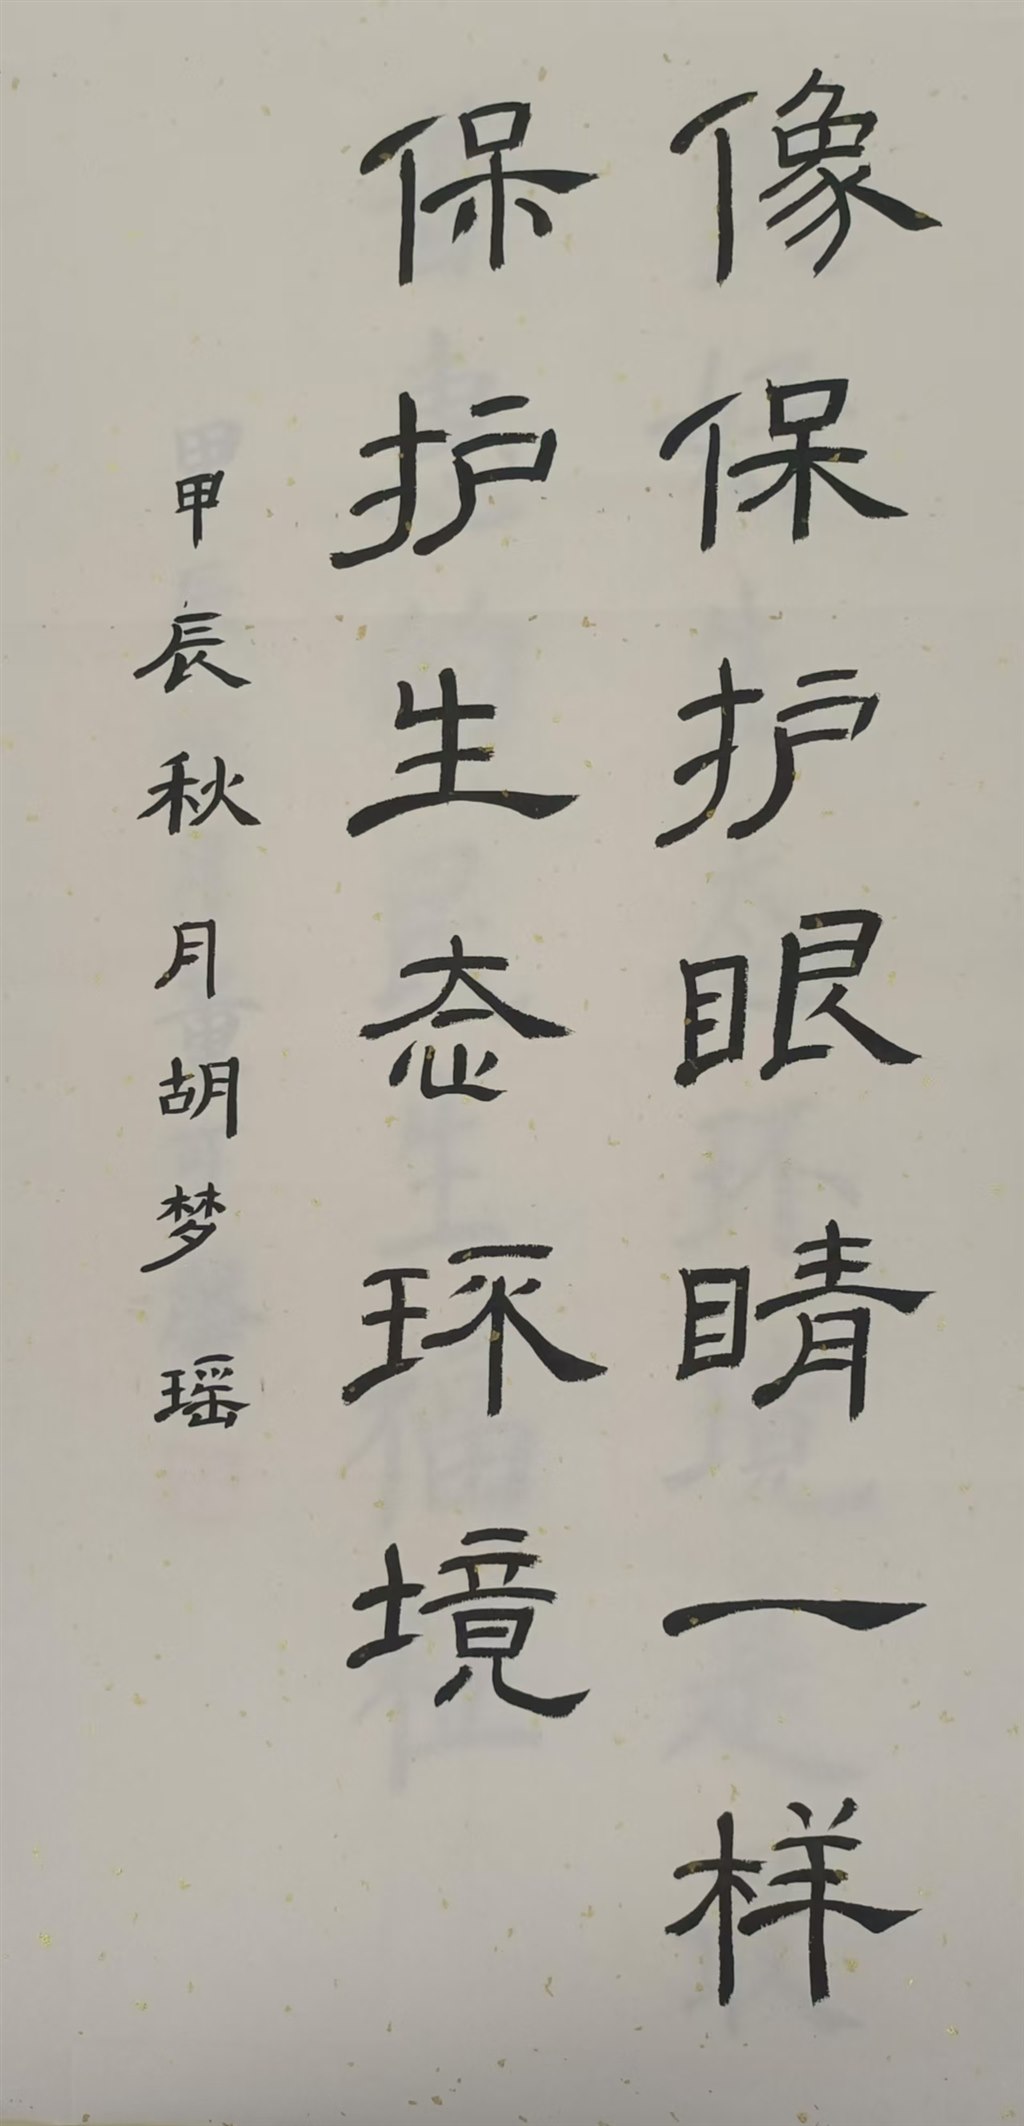 像保护眼睛一样
保护生态环境
甲辰秋月胡梦瑶